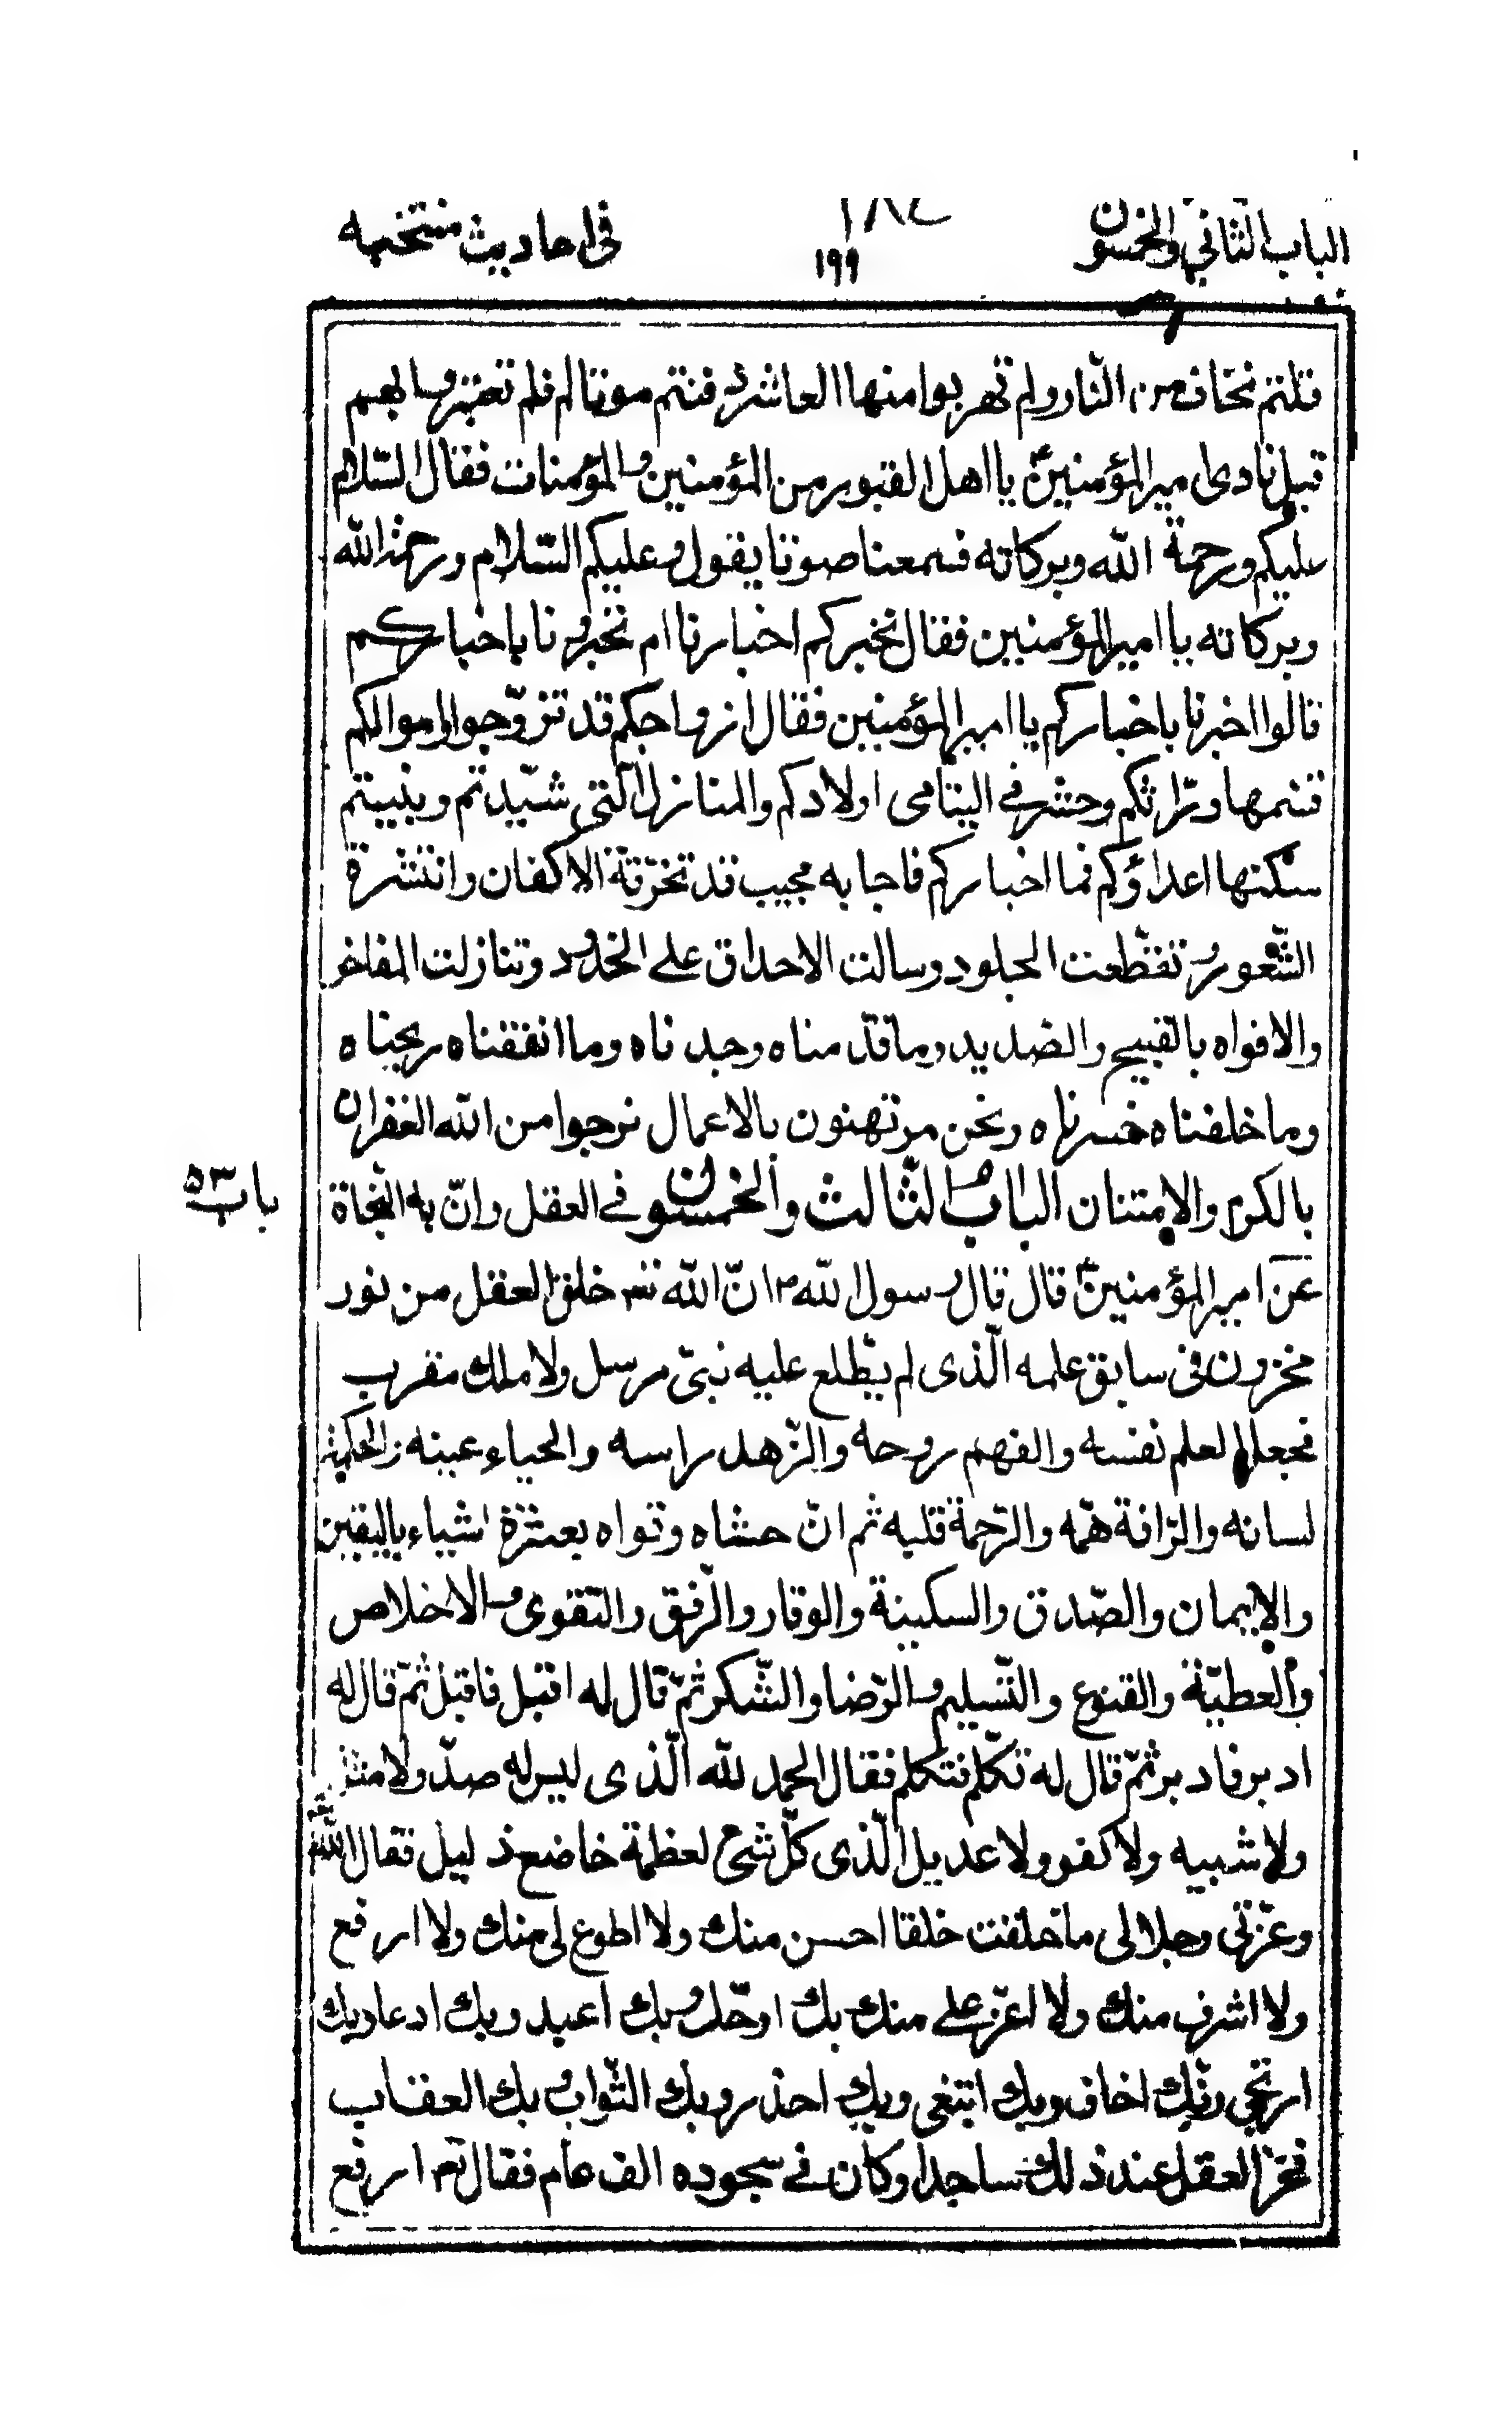 الباب الثاني والخمسون
١٩٩
في احاديث منتخبه
قلتم نخاف من النار ولم تهربوا منها العاشر دفنتم موتاكم فلم تعتبروا بهم
قيل نادى امير المؤمنين يا اهل القبور من المؤمنين والمؤمنات فقال السّلام
عليكم ورحمة الله وبركاته فسمعنا صوتا يقول وعليكم السّلام ورحمة الله
وبركاته يا امير المؤمنين فقال نخبركم اخبارنا ام تخبرونا باخباركم
قالوا اخبرنا باخباركم يا امير المؤمنين فقال ازواجكم قد تزوّجوا واموالكم
قسمها ورّاثكم وحشر في اليتامى اولادكم والمنازل الّتي شيّدتم وبنيتم
سكنتها اعداؤكم فما اخباركم فاجابه مجيب قد تخرّقة الاكفان وانتشرة
الشّعور وتقطّعت الجلود وسالت الاحداق على الخدود وتنازلت المفاخر
والافواه بالقيح والصديد وما قدّمناه وجدناه وما انفقناه ربحناه
وما خلفناه خسرناه ونحن مرتهنون بالاعمال نرجوا من الله الغفران
بالكرم والامتنان الباب الثّالث والخمسون في العقل وانّ به النجاة
باب ٥٣
عن امير المؤمنين قال قال رسول الله ص انّ الله خلق العقل من نور
مخزون في سابق علمه الّذى لم يطّلع عليه نبىّ مرسل ولا ملك مقرب
فجعل العلم نفسه والفهم روحه والزّهد راسه والحياء عينه والحكمة
لسانه والرّافة همّه والرّحمة قلبه ثم انّ حشاه وقواه بعشرة اشياء باليقين
والايمان والصّدق والسكينة والوقار والرّفق والتّقوى والاخلاص
والعطيّة والقنوع والتّسليم والرّضا والشّكر ثمّ قال له اقبل فاقبل ثمّ قال له
ادبر فادبر ثمّ قال له تكلّم فتكلم فقال الحمد لله الّذى ليس له ضدّ ولا
ولا شبيه ولا كفو ولا عديل الّذى كلّ شئ لعظمة خاضع ذليل فقال الله
وعزّتي وجلالى ما خلقت خلقا احسن منك ولا اطوع لى منك ولا ارفع
ولا اشرف منك ولا اعزّ على منك بك اوحّد وبك اعبد وبك ادعا وبك
ارتجى وبك اخاف وبك ابتغى وبك احذر وبك الثّواب وبك العقاب
فخرّ العقل عند ذلك ساجدا وكان في سجوده الف عام فقال ارفع